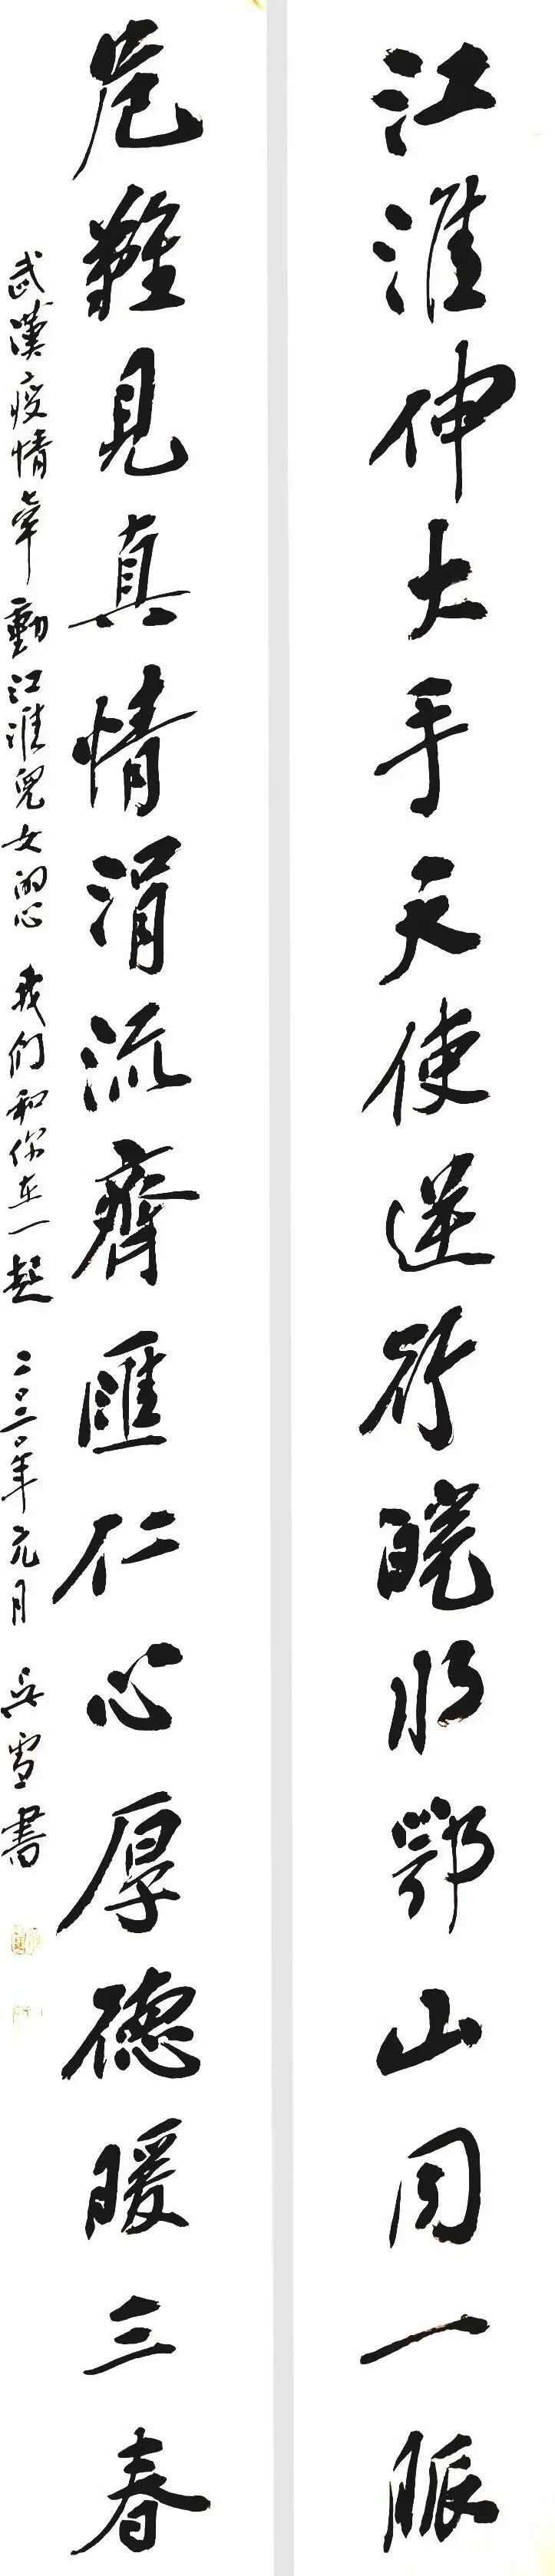 江淮伸大手天使逆行皖水鄂山同一脈
危難見真情涓流齊匯仁心厚德暖三春
武漢疫情牽動江淮兒女的心 我們和你在一起 二〇二〇年元月 吳雪書